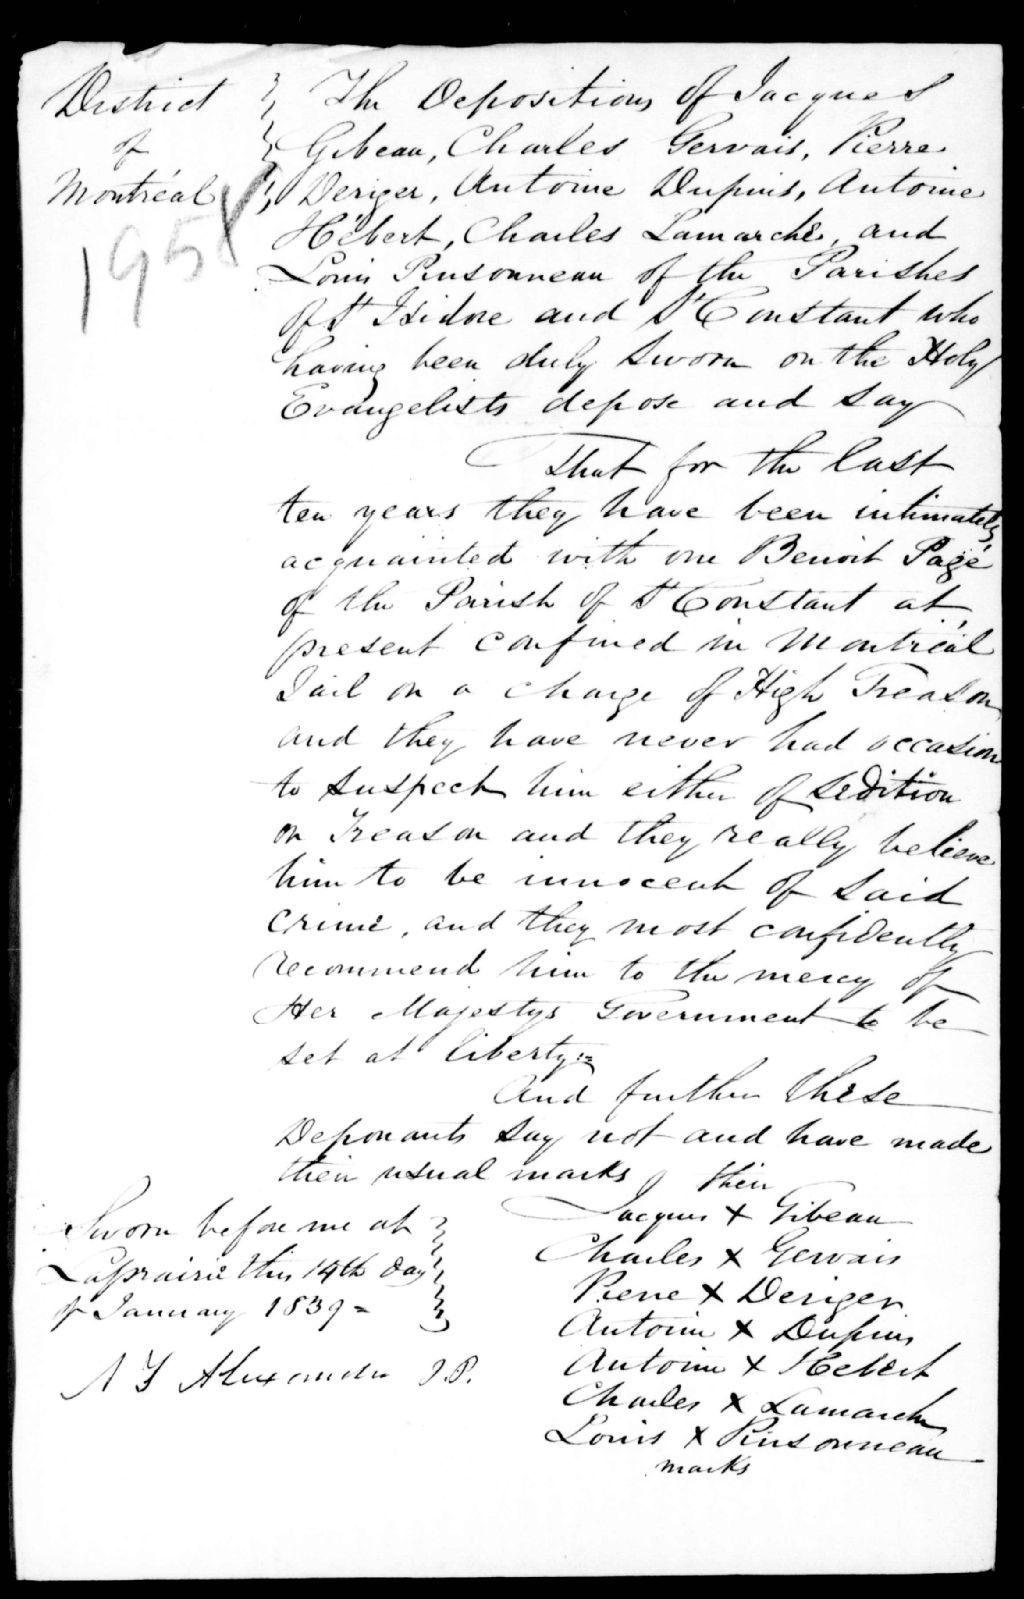 District
of
Montréal
195
The Depositions of Jacques
Gibeau, Charles Gervais, Pierre
Deriger, Antoine Dupuis, Antoine
Hébert, Charles Lamarche, and
Louis Pinsonneau of the Parishes
of St Isidore and St Constant who
having been duly sworn on the Holy
Evangelists depose and say
That for the last
ten years they have been intimately
acquainted with one Benoit Pagé
of the Parish of St Constant at
present confined in Montréal
Jail on a charge of High Treason
and they have never had occasion
to suspect him either of sedition
or Treason and they really believe
him to be innocent of said
crime, and they most confidently
recommend him to the mercy of
Her Majestys Government to be
set at liberty
And further these
Deponants say not and have made
their usual marks
their
Jacques X Gibeau
Charles X Gervais
Pierre X Deriger
Antoine X Dupuis
Antoine X Hebert
Charles X Lamarche
Louis X Pinsonneau
marks
Sworn before me at
Laprairie this 14th day
of January 1839 =
Alexander J.P.